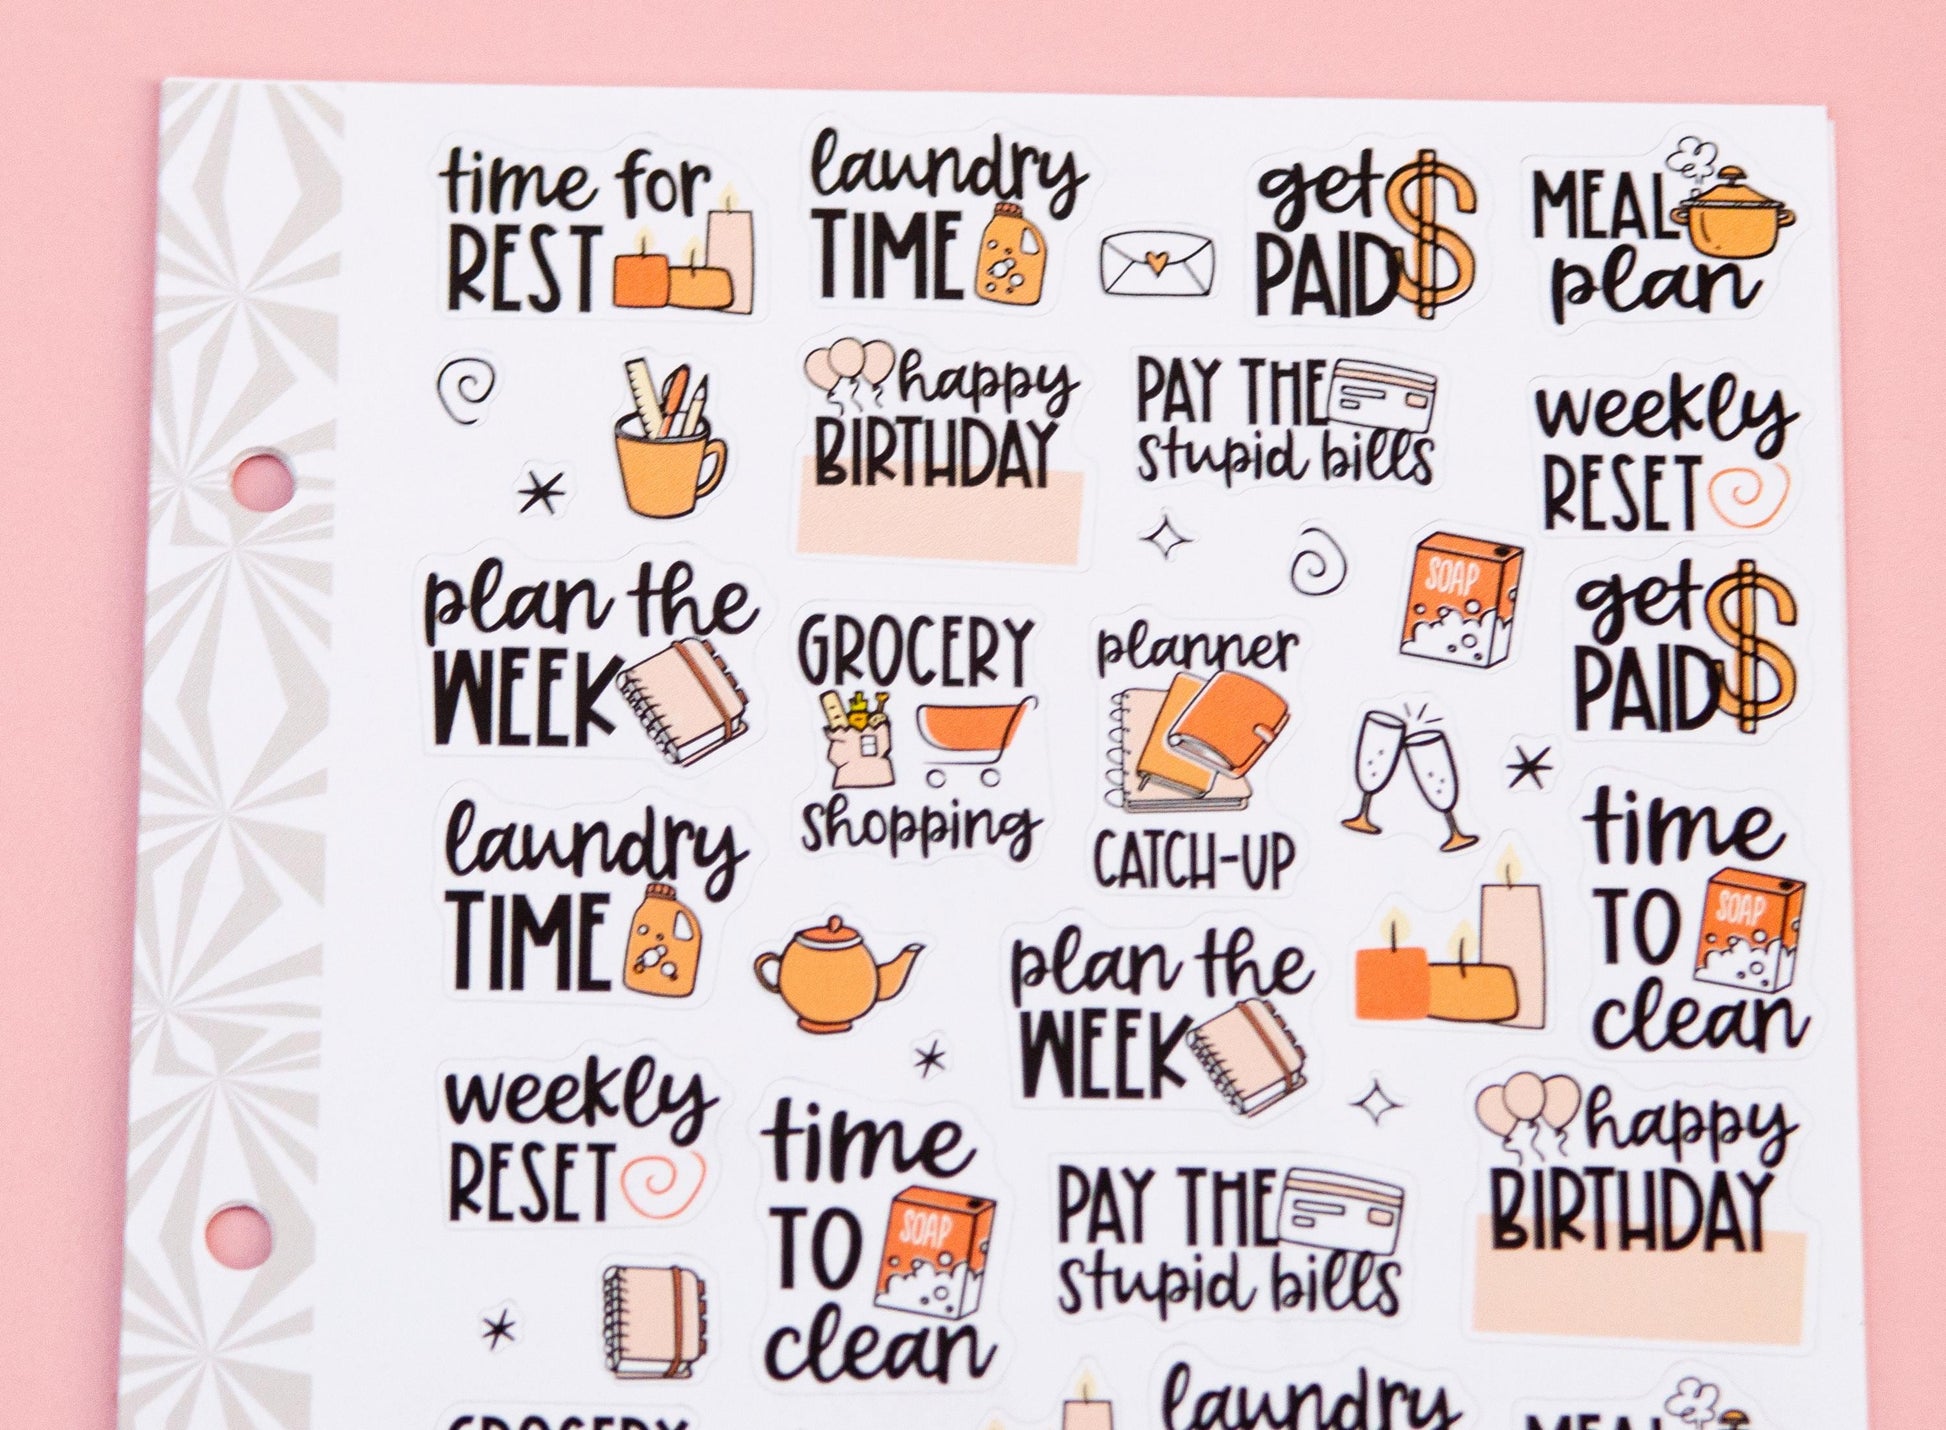 time for
REST
laundry
TIME
get
PAID
$
MEAL
plan
happy
BIRTHDAY
PAY THE
stupid bills
weekly
RESET
plan the
WEEK
GROCERY
shopping
planner
CATCH-UP
SOAP
get
PAID
$
laundry
TIME
plan the
WEEK
time
TO
SOAP
clean
weekly
RESET
time
TO
SOAP
clean
PAY THE
stupid bills
happy
BIRTHDAY
GROCERY
laundry
MEAL